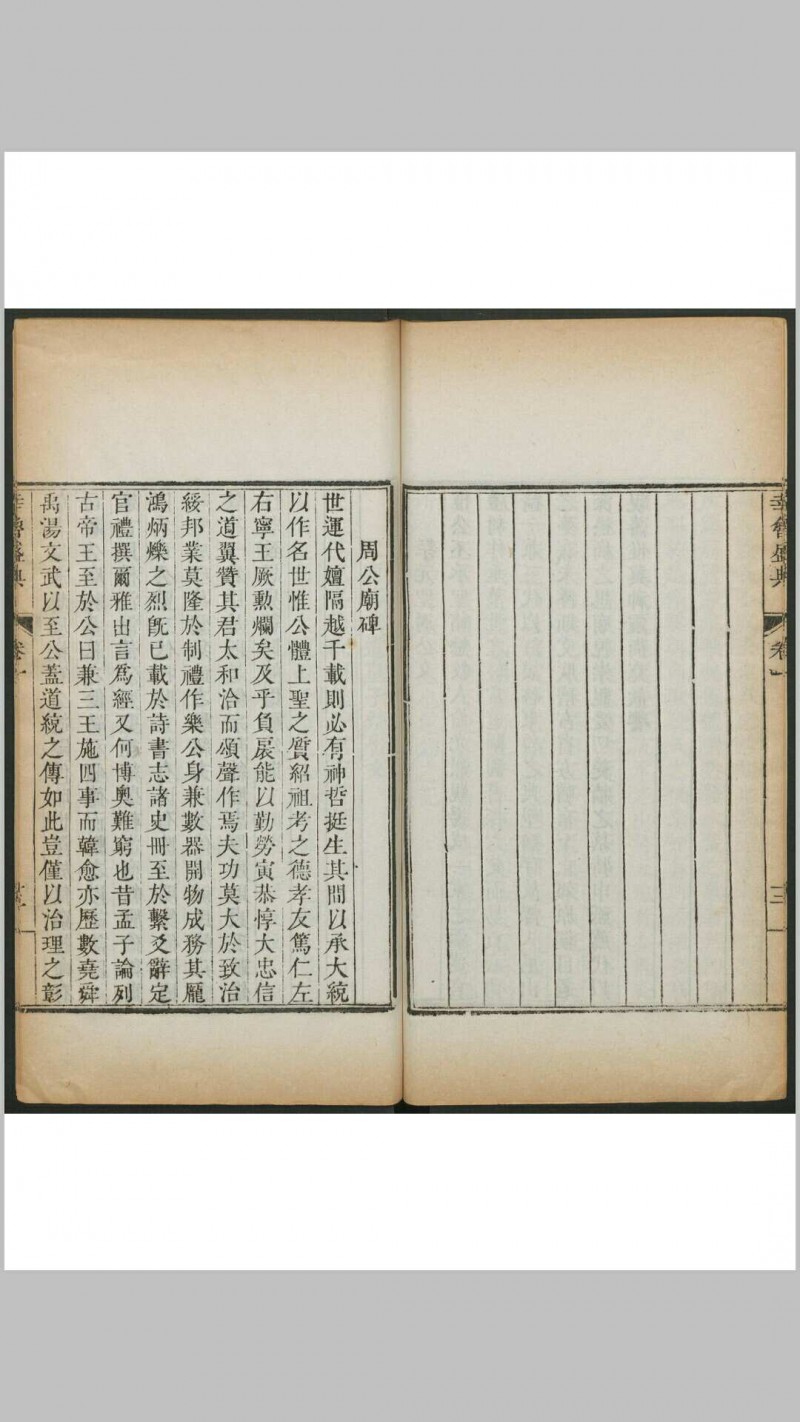 幸魯盛典
卷一
三
周公廟碑
世運代嬗隔越千載則必有神哲挺生其間以承大統
以作名世惟公體上聖之質紹祖考之德孝友篤仁左
右寧王厥勲爛矣及乎負扆能以勤勞寅恭惇大忠信
之道翼贊其君太和洽而頌聲作焉夫功莫大於致治
綏邦業莫隆於制禮作樂公身兼數器開物成務其龎
鴻炳爍之烈旣已載於詩書志諸史冊至於繫爻辭定
官禮撰爾雅出言爲經又何博奧難窮也昔孟子論列
古帝王至於公曰兼三王施四事而韓愈亦歷數堯舜
禹湯文武以至公蓋道統之傳如此豈僅以治理之彰
幸魯盛典
卷一